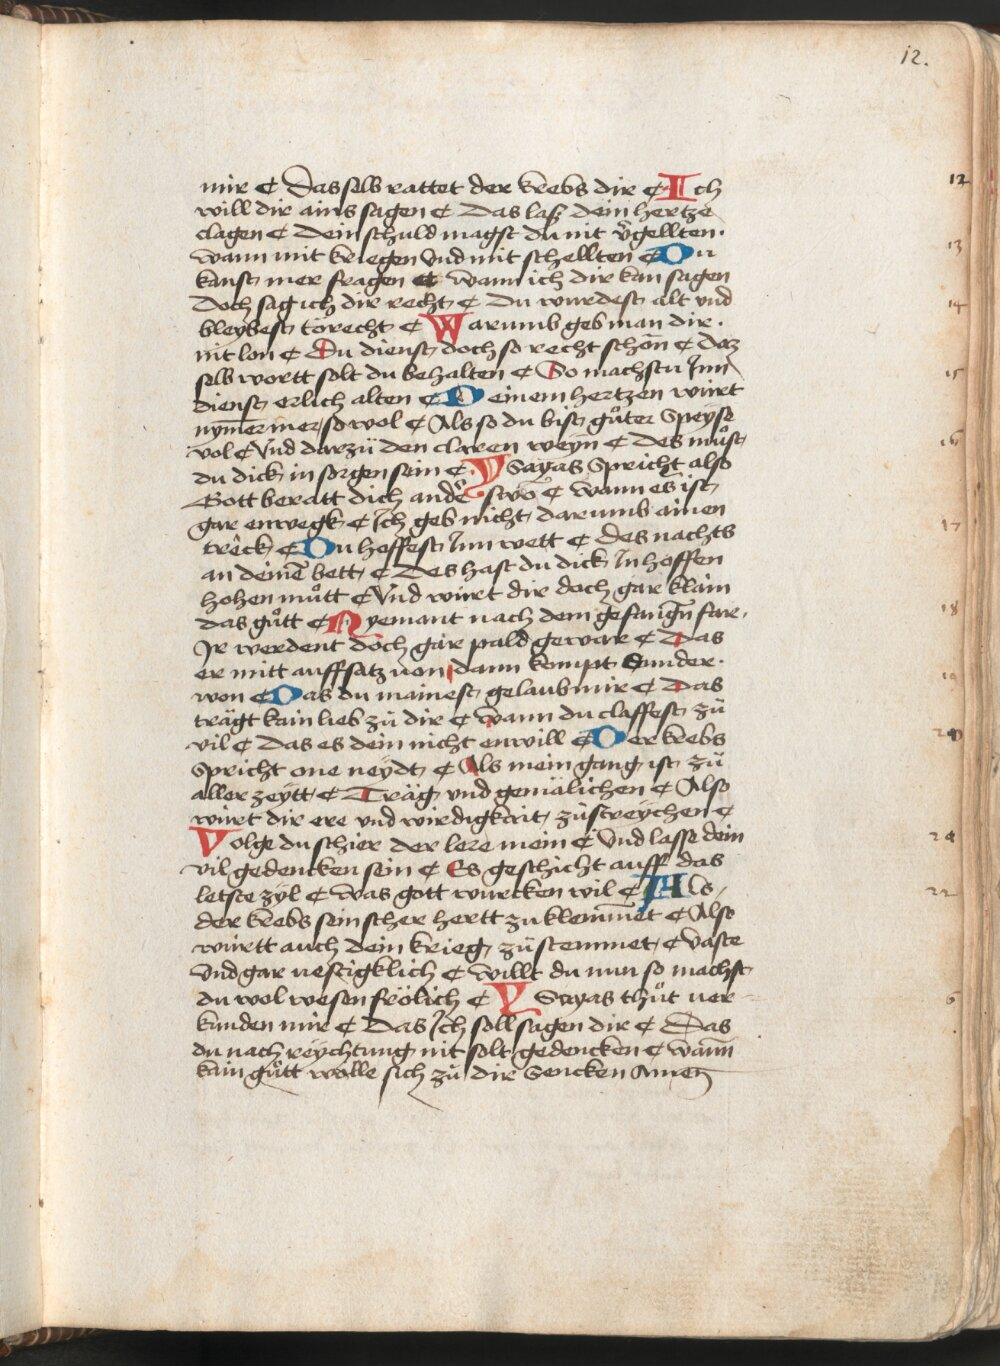 12.
mir ¢ Das selb rattet der krebs dir ¢ Ich
will dir ains sagen ¢ Das laß dein hertze
clagen ¢ Dein schuld magst du nit v̈gellten.
wann mit kriegen vnd mit schellten ¢ Du
kanst mer fragen ¢ wann ich dir kan sagen
Doch sag ich dir recht ¢ Du wurdest alt vnd
bleybest törecht ¢ Warumb geb man dir.
nit lon ¢ Du dienst doch so recht schon ¢ Daz
selb wortt solt du behalten ¢ So machstu Inn
dienst erlich alten ¢ Deinem hertzen wirt
nym̄er mer so wol ¢ Als so du bist gůter Speyse
vol ¢ Vnd darzü den claren weyn ¢ Des můst
du dick in sorgen sein ¢ Ysayas Spricht also
Gott beratt dich anders wo ¢ wann es ist
gar enwegk ¢ Ich geb nicht darumb ainen
treck ¢ Du hoffest Inn wett ¢ des nachts
an deinē bett ¢ Des hast du dick In hoffen
hohen můtt ¢ Vnd wirt dir doch gar klain
das gůtt ¢ Nyemant nach dem gefangn̄ far.
Ir werdent doch gar pald gewar ¢ Das
er mitt auffsatz von dann kompt Sunder.
won ¢ Das du mainest gelaub mir ¢ Das
trägt kain lieb zů dir ¢ wann du claffest zů
vil ¢ Das es dein nicht enwill ¢ Der krebs
Spricht one neydt ¢ Als mein gang ist zů
aller zeytt ¢ Träg vnd gemälichen ¢ Also
wirt dir ere vnd wirdigkait zůstreychen ¢
Volge du schier der lere mein ¢ Vnd lasse dein
vil gedencken sein ¢ Es geschicht auff das
letste zyl ¢ was gott wurcken wil ¢ Als
der krebs sein scher hertt zu klemmet ¢ Also
wirtt auch dein krieg zůstemmet ¢ vaste
Vnd gar vestigklich ¢ willt du nun so machst
du wol wesen frölich ¢ Ysayas thůt ver-
kunden mir ¢ Das Ich soll sagen dir ¢ Das
du nach reychtung nit solt gedencken ¢ wann
kain gůtt wölle sich zů dir Sencken Amen
12
13
14
15
16
17
18
19
20
22